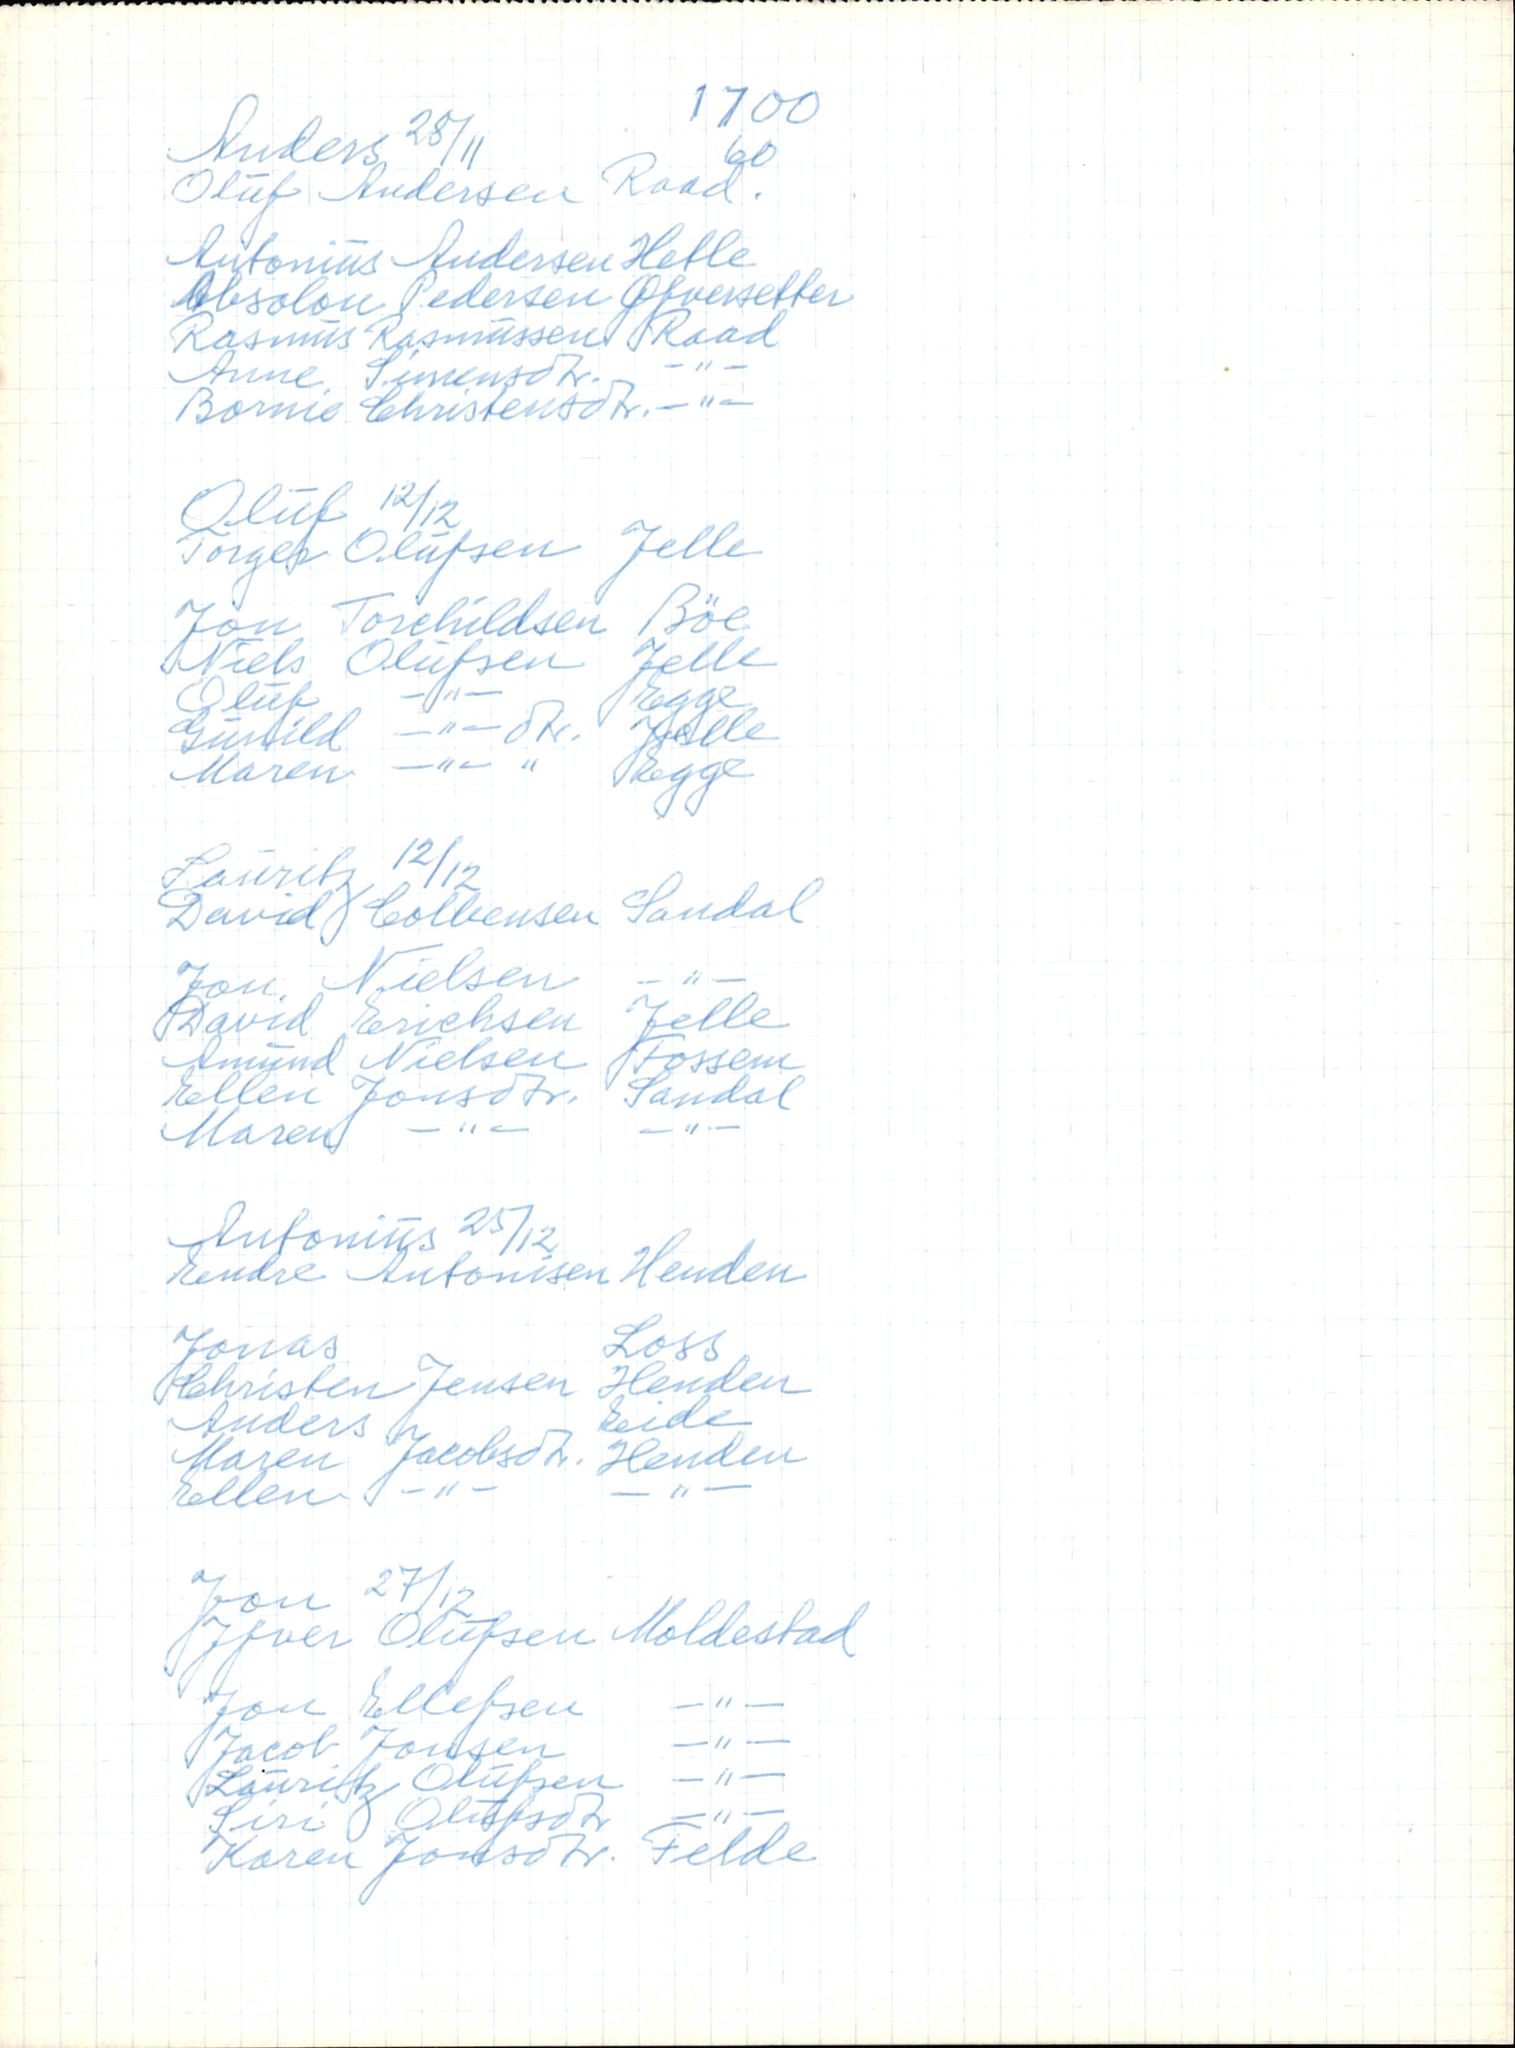 1700
60
Anders 28/11
Oluf Andersen Raad.
Antonius Andersen Hetle
Absolon Pedersen Øfversetter
Rasmus Rasmussen Raad
Anne Simensdtr. -"-
Bornie Christensdtr. -"-
Oluf 12/12
Torger Olufsen Jelle
Jon Torchildsen Böe
Niels Olufsen Jelle
Oluf -"- Egge
Gunild -"- dtr. Jelle
Maren -"- " Egge
Lauritz 12/12
David Colbensen Sandal
Jon Nielsen -"-
David Erichsen Jelle
Amund Nielsen Fossem
Ellen Jonsdtr. Sandal
Maren -"- -"-
Antonius 25/12
Endre Antonisen Henden
Jonas Loss
Christen Jensen Henden
Anders Eide
Maren Jacobsdtr. Henden
Ellen -"- -"-
Jon 27/12
Jfver Olufsen Moldestad
Jon Ellefsen -"-
Jacob Jonsen -"-
Lauritz Olufsen -"-
Siri Olufsdtr -"-
Karen Jonsdtr. Felde